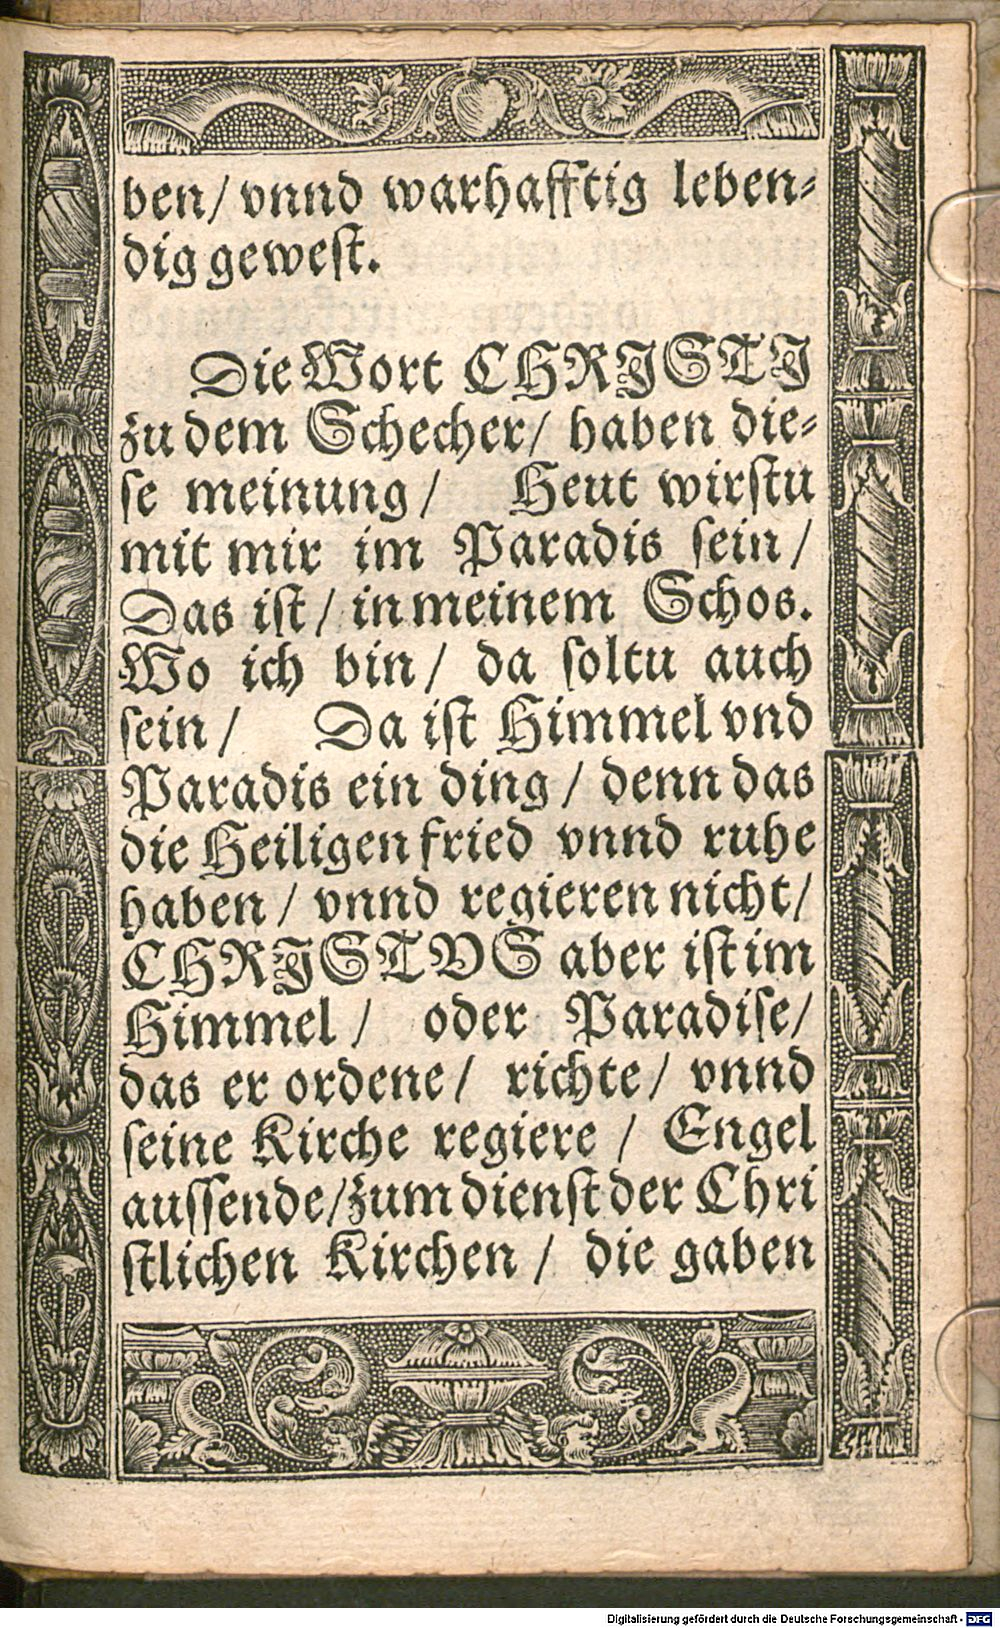 ben/ vnnd warhafftig leben-
dig gewest.
Die Wort CHRISTI
zu dem Schecher/ haben die-
se meinung/ Heut wirstu
mit mir im Paradis sein/
Das ist/ in meinem Schos.
Wo ich bin/ da soltu auch
sein/ Da ist Himmel vnd
Paradis ein ding/ denn das
die Heiligen fried vnnd ruhe
haben/ vnnd regieren nicht/
CHRISTVS aber ist im
Himmel/ oder Paradise/
das er ordene/ richte/ vnnd
seine Kirche regiere/ Engel
aussende/ zum dienst der Chri
stlichen Kirchen/ die gaben
Digitalisierung gefördert durch die Deutsche Forschungsgemeinschaft - DFG